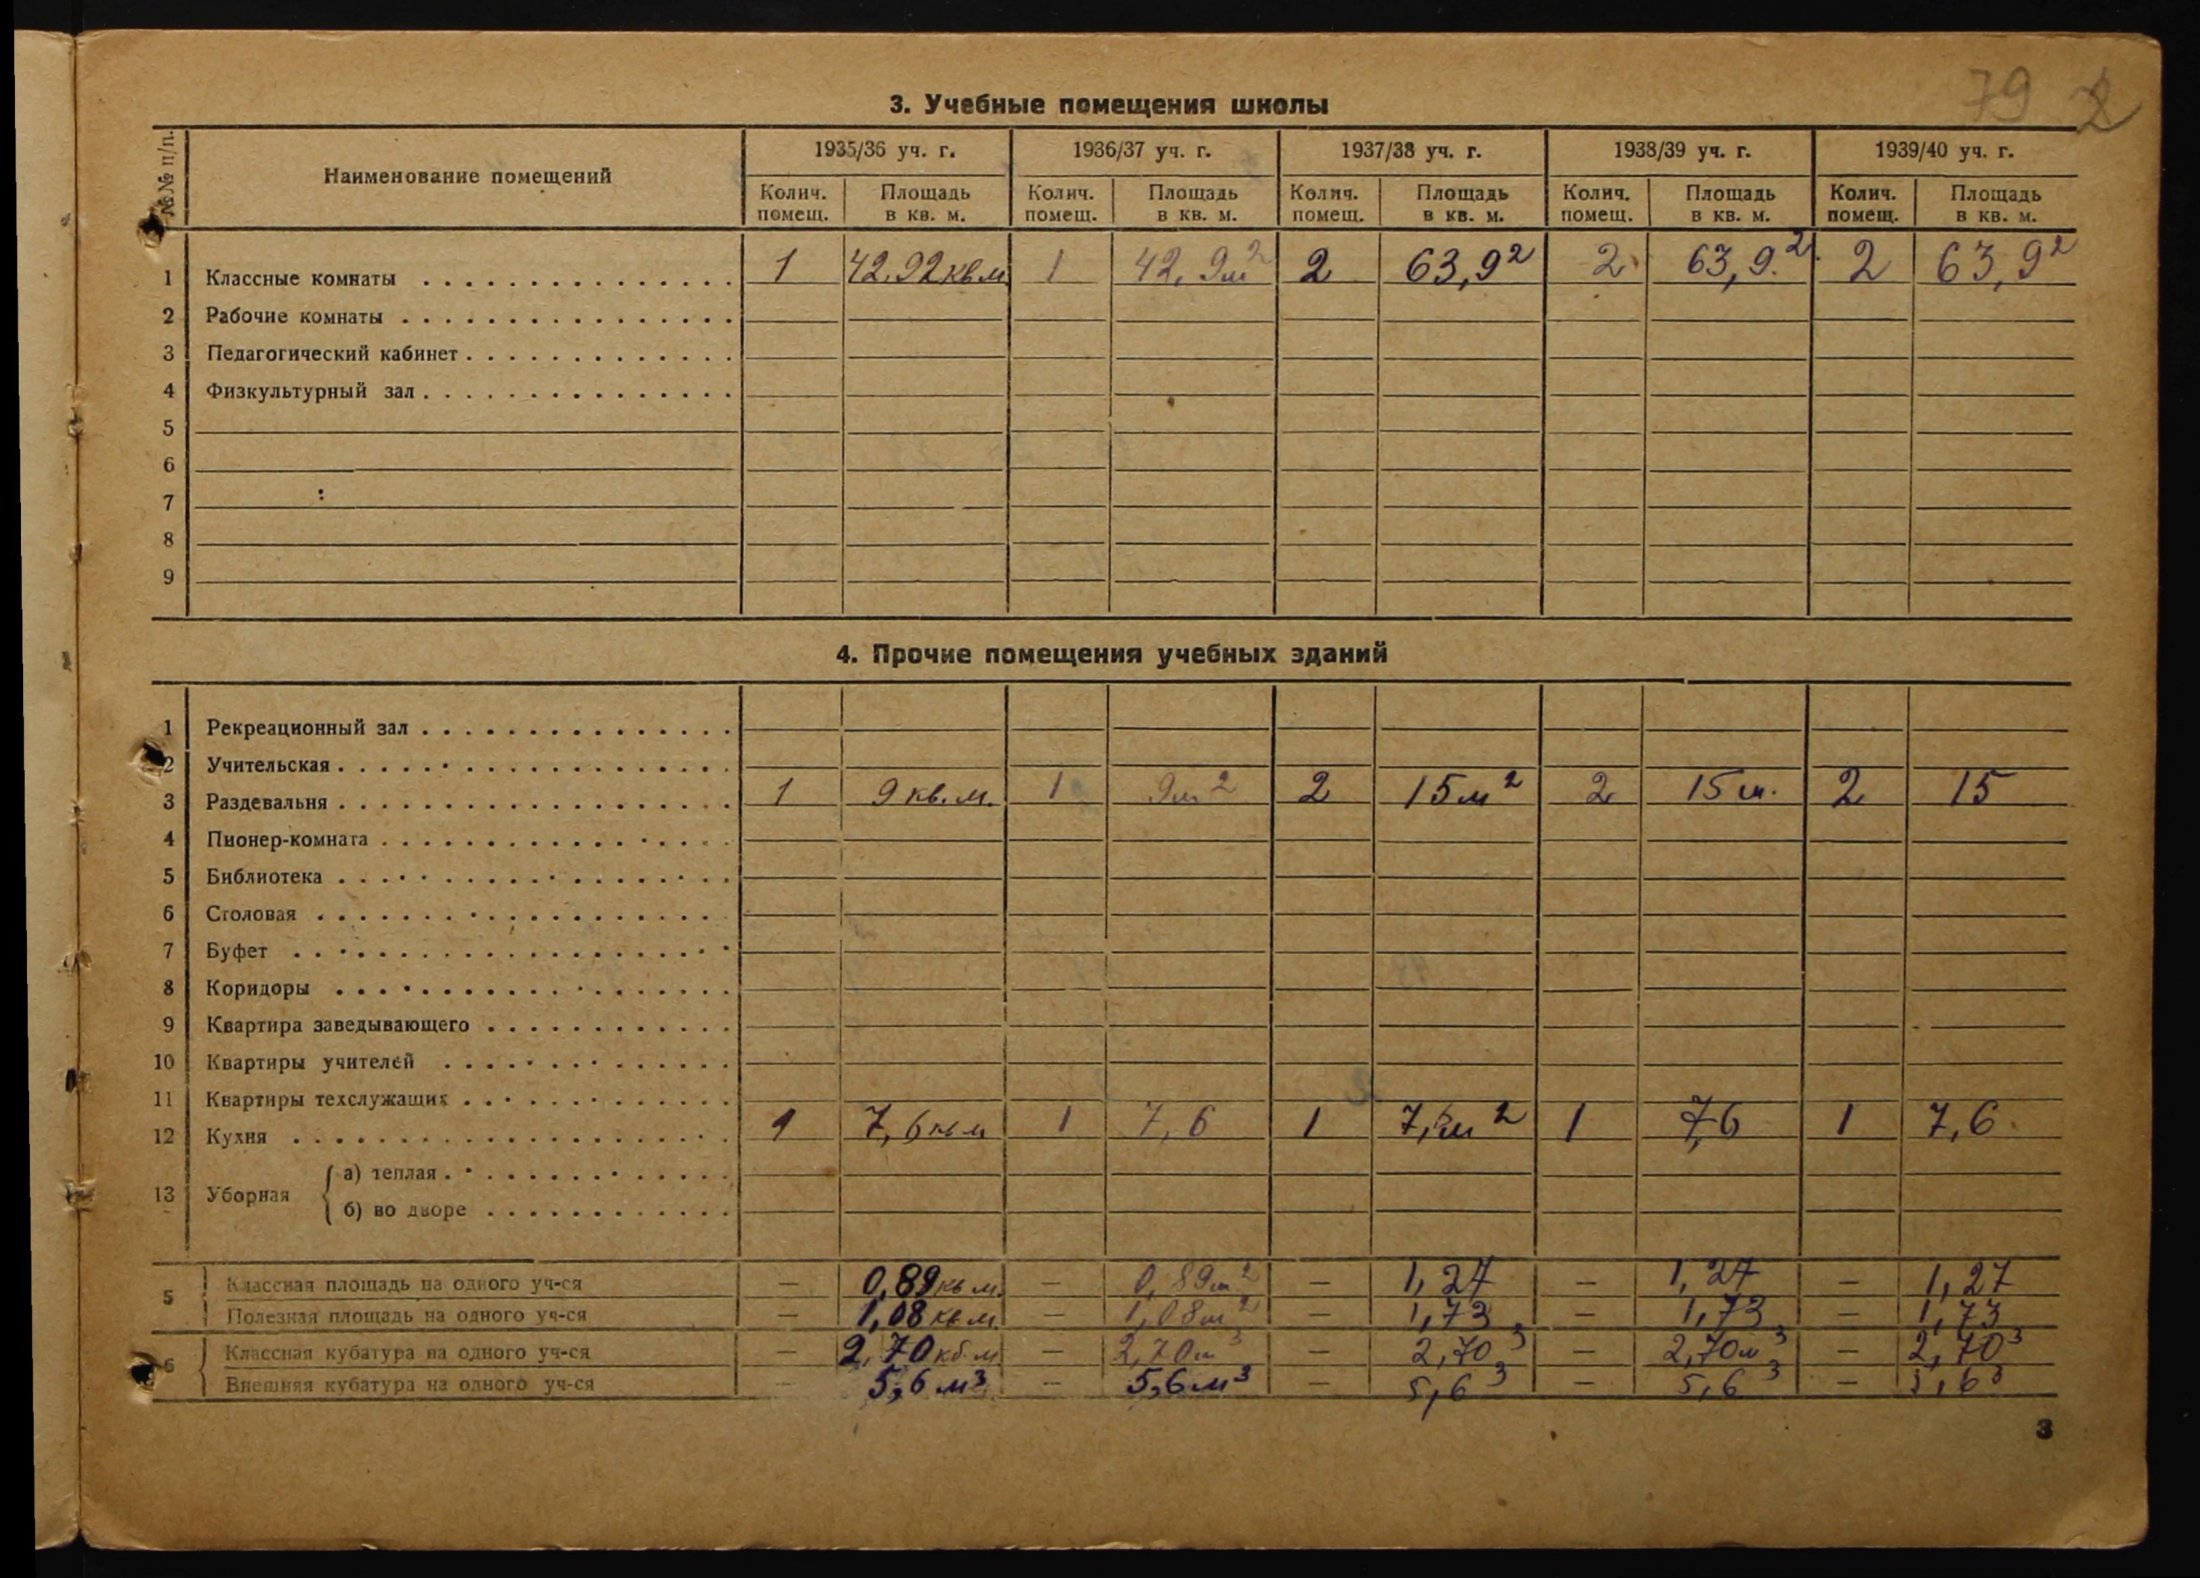 79 2
3. Учебные помещения школы
№№ п/п. Наименование помещений 1935/36 уч. г. 1936/37 уч. г. 1937/38 уч. г. 1938/39 уч. г. 1939/40 уч. г.
Колич. помещ. Площадь в кв. м. Колич. помещ. Площадь в кв. м. Колич. помещ. Площадь в кв. м. Колич. помещ. Площадь в кв. м. Колич. помещ. Площадь в кв. м.
1 Классные комнаты 1 42,92 кв м 1 42,9м² 2 63,9² 2 63,9.² 2 63,9²
2 Рабочие комнаты
3 Педагогический кабинет
4 Физкультурный зал
5
6
7
8
9
4. Прочие помещения учебных зданий
1 Рекреационный зал
2 Учительская
3 Раздевальня 1 9 кв. м. 1 9м² 2 15 м² 2 15 м. 2 15
4 Пионер-комната
5 Библиотека
6 Столовая
7 Буфет
8 Коридоры
9 Квартира заведывающего
10 Квартиры учителей
11 Квартиры техслужащих
12 Кухня 1 7,6 кв м 1 7,6 1 7,6м² 1 7,6 1 7,6
13 Уборная а) теплая
б) во дворе
5 Классная площадь на одного уч-ся — 0,89 кв м. — 0,89м² — 1,27 — 1,27 — 1,27
Полезная площадь на одного уч-ся — 1,08 кв м — 1,08м² — 1,73 — 1,73 — 1,73
6 Классная кубатура на одного уч-ся — 2,70 кб м — 2,70м³ — 2,70³ — 2,70м³ — 2,70³
Внешняя кубатура на одного уч-ся — 5,6 м³ — 5,6 м³ — 5,6³ — 5,6³ — 5,6³
3